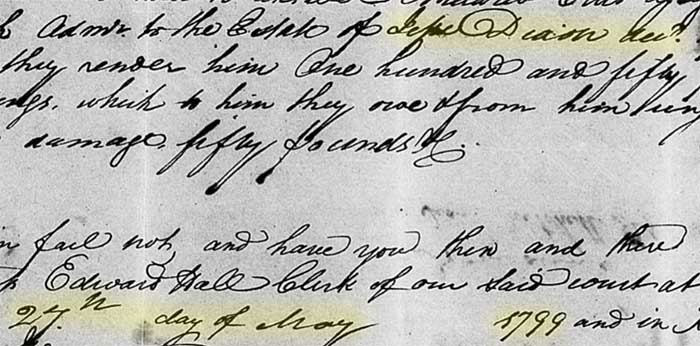 Admr. to the Estate of Jesse Dixon decd.
they render him One hundred and fifty
which to him they owe & from him
damage. fifty pounds &c.
fail not, and have you then and there
Edward Hall Clerk of our said court at
27th day of May 1799 and in